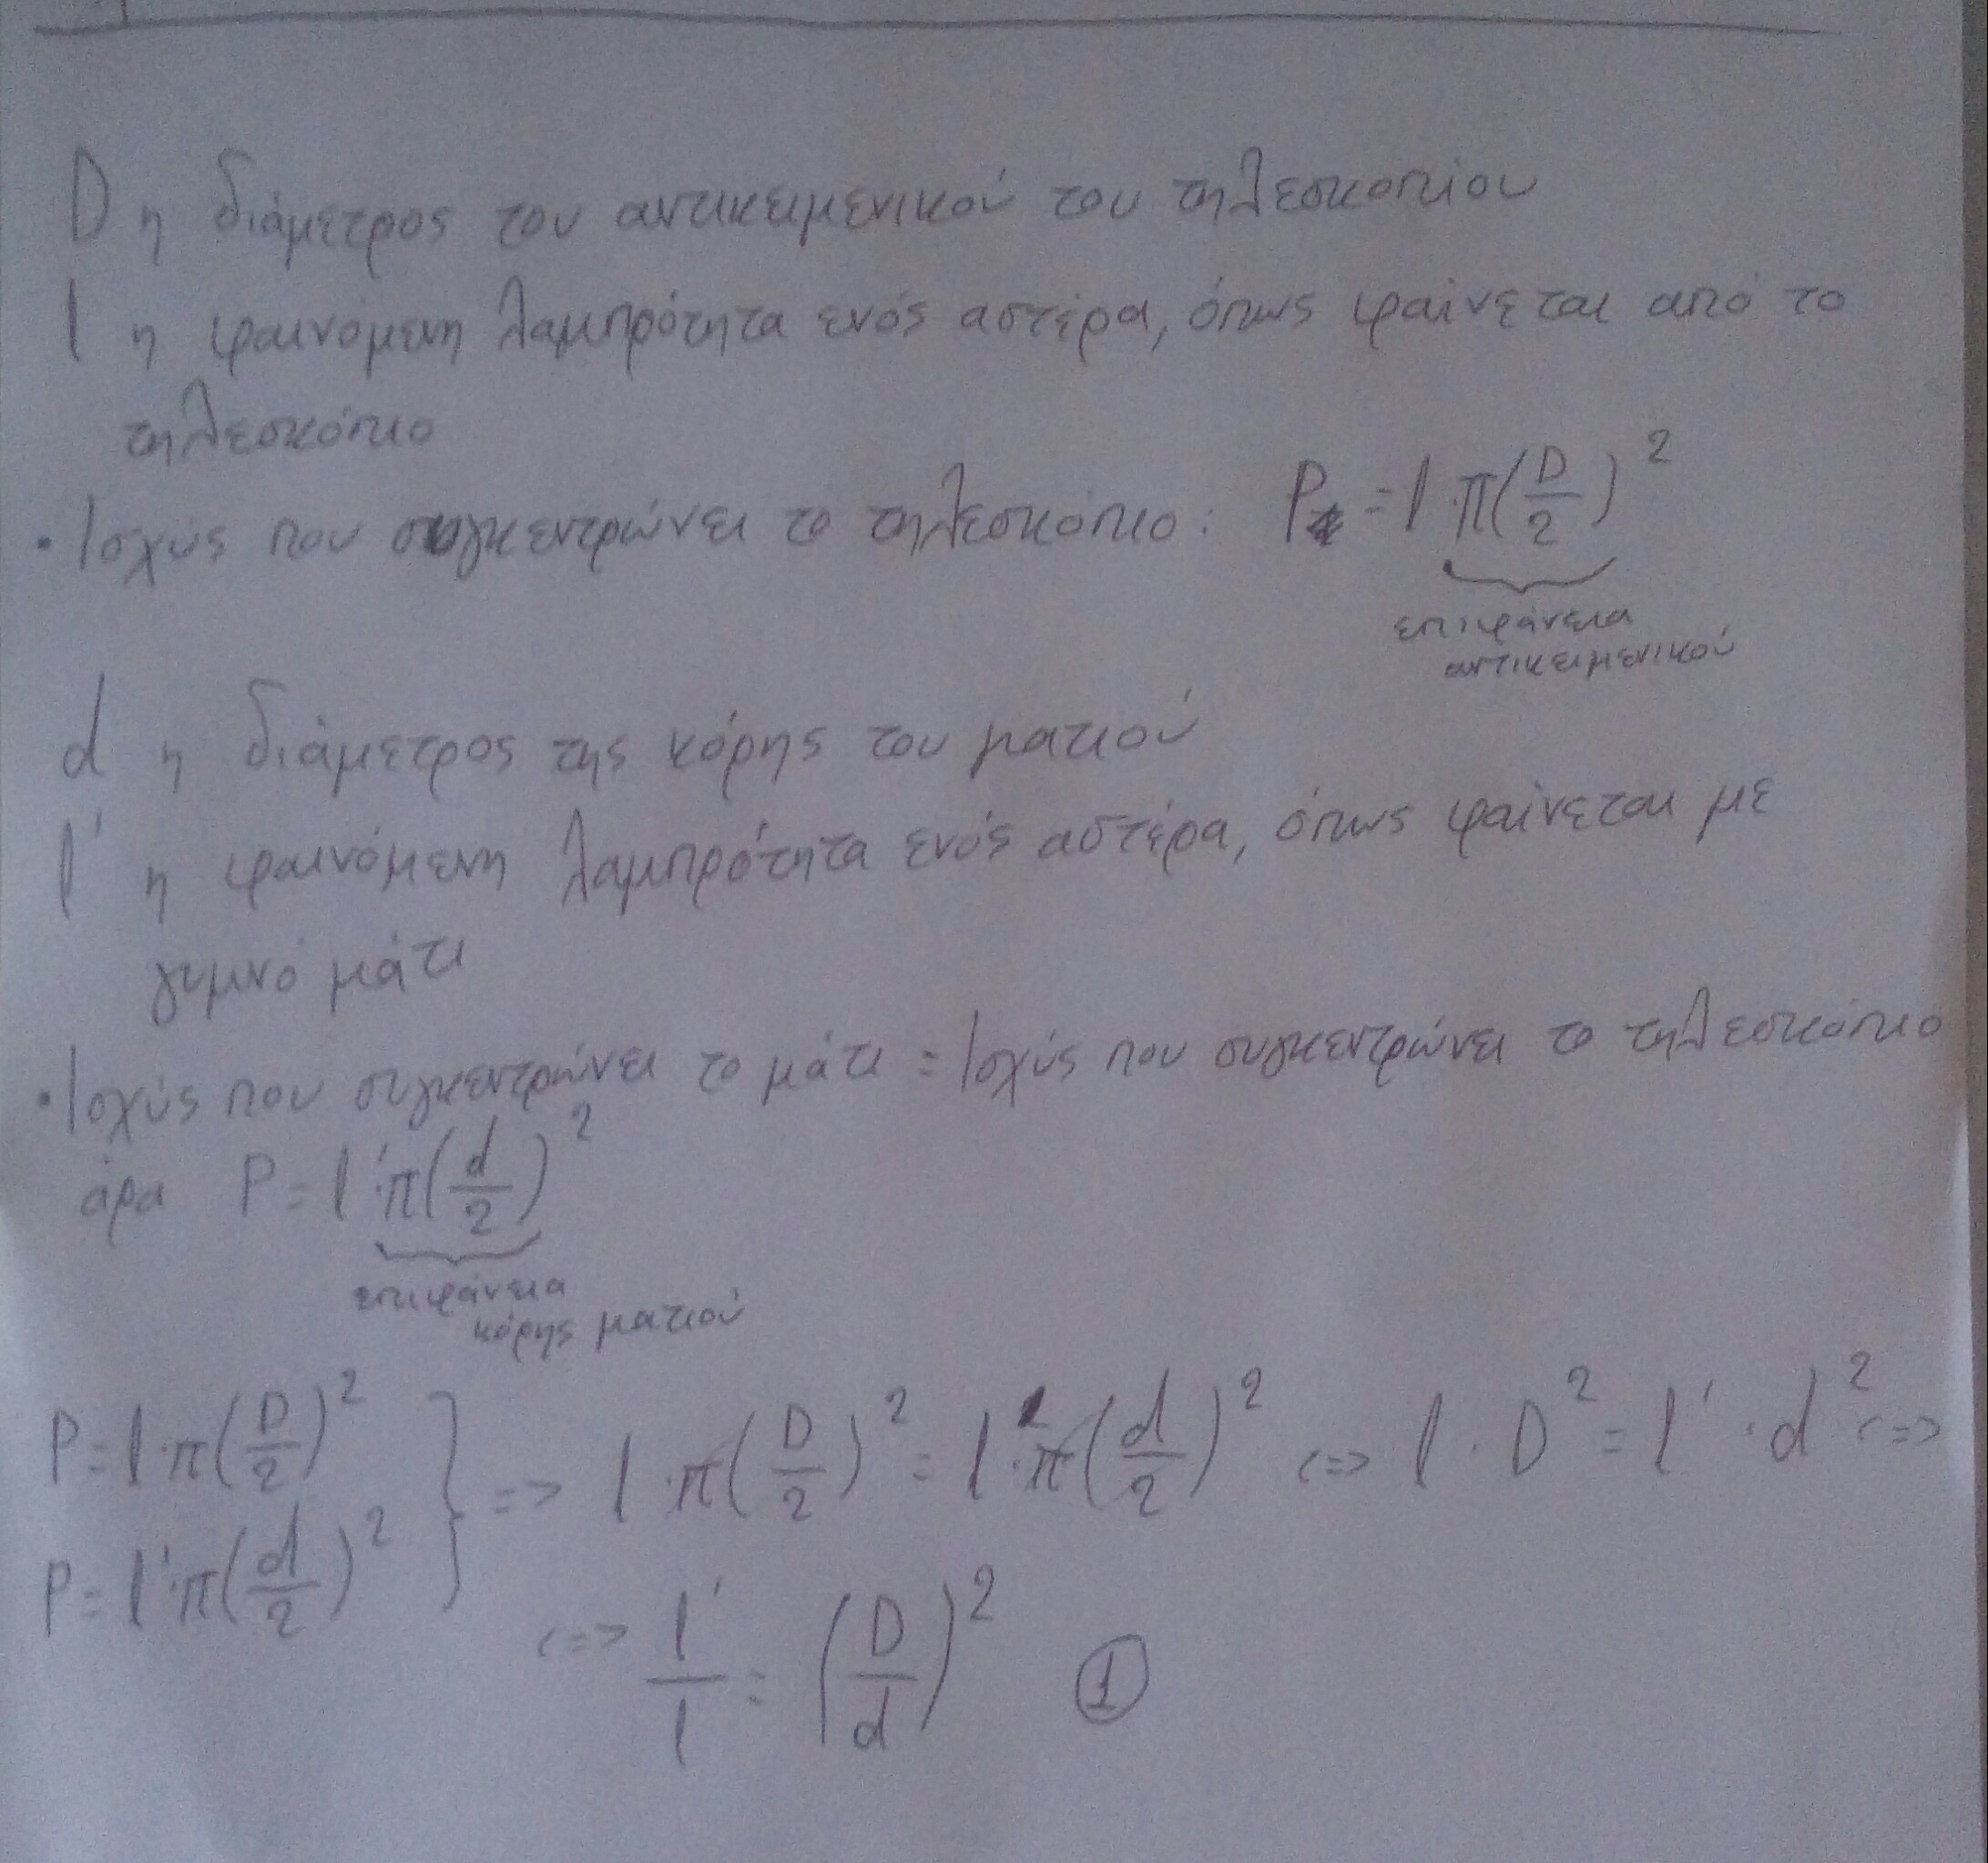 D η διάμετρος του αντικειμενικού του τηλεσκοπίου
l η φαινόμενη λαμπρότητα ενός αστέρα, όπως φαίνεται από το
τηλεσκόπιο
• Ισχύς που συγκεντρώνει το τηλεσκόπιο: P = l·π(D/2)²
επιφάνεια
αντικειμενικού
d η διάμετρος της κόρης του ματιού
l' η φαινόμενη λαμπρότητα ενός αστέρα, όπως φαίνεται με
γυμνό μάτι
• Ισχύς που συγκεντρώνει το μάτι = Ισχύς που συγκεντρώνει το τηλεσκόπιο
άρα P = l'·π(d/2)²
επιφάνεια
κόρης ματιού
P = l·π(D/2)²
P = l'·π(d/2)² } => l·π(D/2)² = l'·π(d/2)² <=> l·D² = l'·d² <=>
<=> l'/l = (D/d)² ①